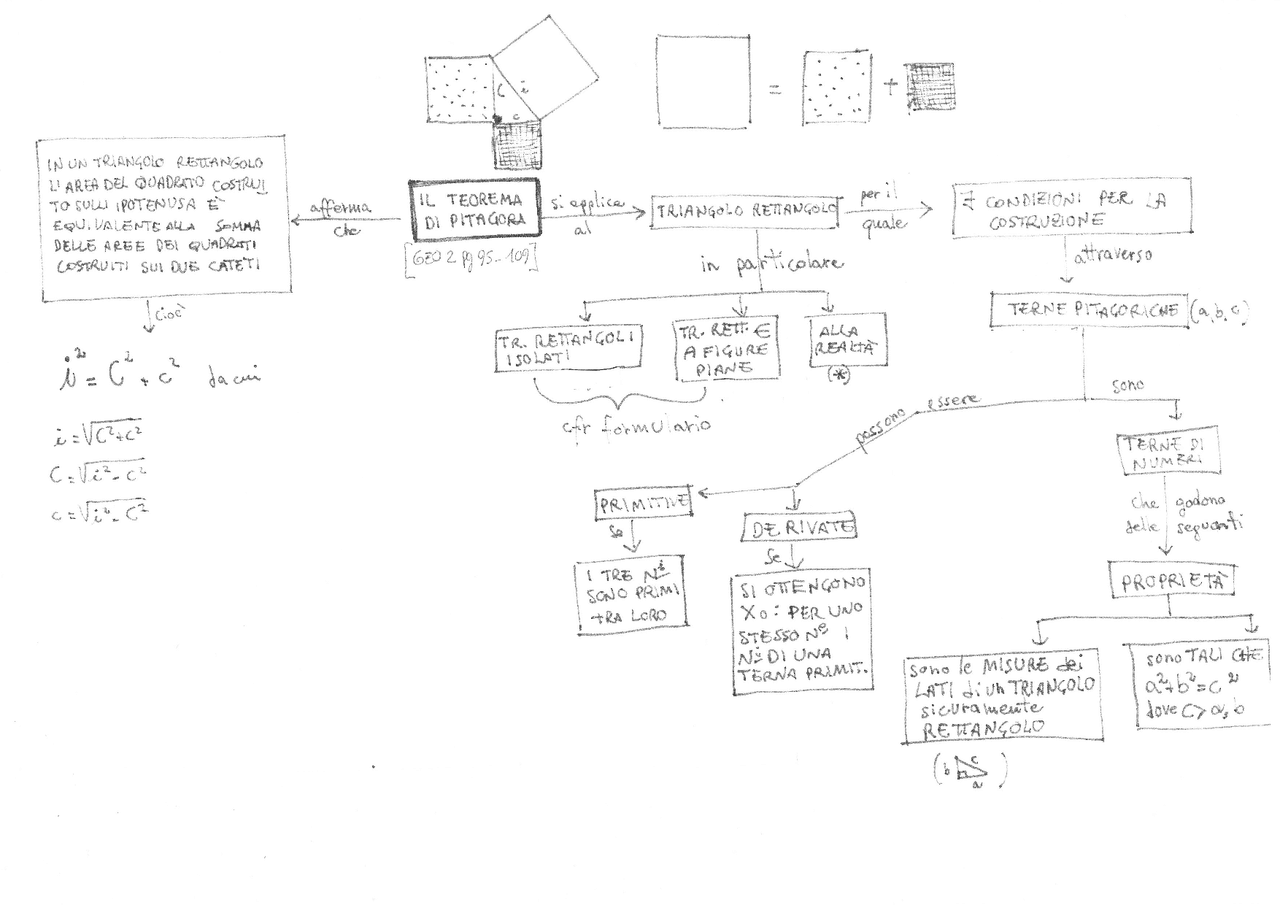 C
i
c
=
+
IN UN TRIANGOLO RETTANGOLO
L'AREA DEL QUADRATO COSTRUI
TO SULL'IPOTENUSA È
EQUIVALENTE ALLA SOMMA
DELLE AREE DEI QUADRATI
COSTRUITI SUI DUE CATETI
afferma
che
IL TEOREMA
DI PITAGORA
[GEO 2 pg 95..109]
si applica
al
TRIANGOLO RETTANGOLO
per il
quale
CONDIZIONI PER LA
COSTRUZIONE
attraverso
TERNE PITAGORICHE (a, b, c)
cioè
i² = C² + c² da cui
i = √C²+c²
C = √i²-c²
c = √i²-C²
in particolare
TR. RETTANGOLI
ISOLATI
TR. RETT. E
A FIGURE
PIANE
ALLA
REALTÀ
(*)
cfr formulario
possono essere
sono
PRIMITIVE
se
I TRE Nⁱ
SONO PRIMI
TRA LORO
DERIVATE
se
SI OTTENGONO
X o : PER UNO
STESSO N° I
Nⁱ DI UNA
TERNA PRIMIT.
TERNE DI
NUMERI
che godono
delle seguenti
PROPRIETÀ
sono le MISURE dei
LATI di un TRIANGOLO
sicuramente
RETTANGOLO
(b c a)
sono TALI CHE
a²+b²=c²
dove c > a, b